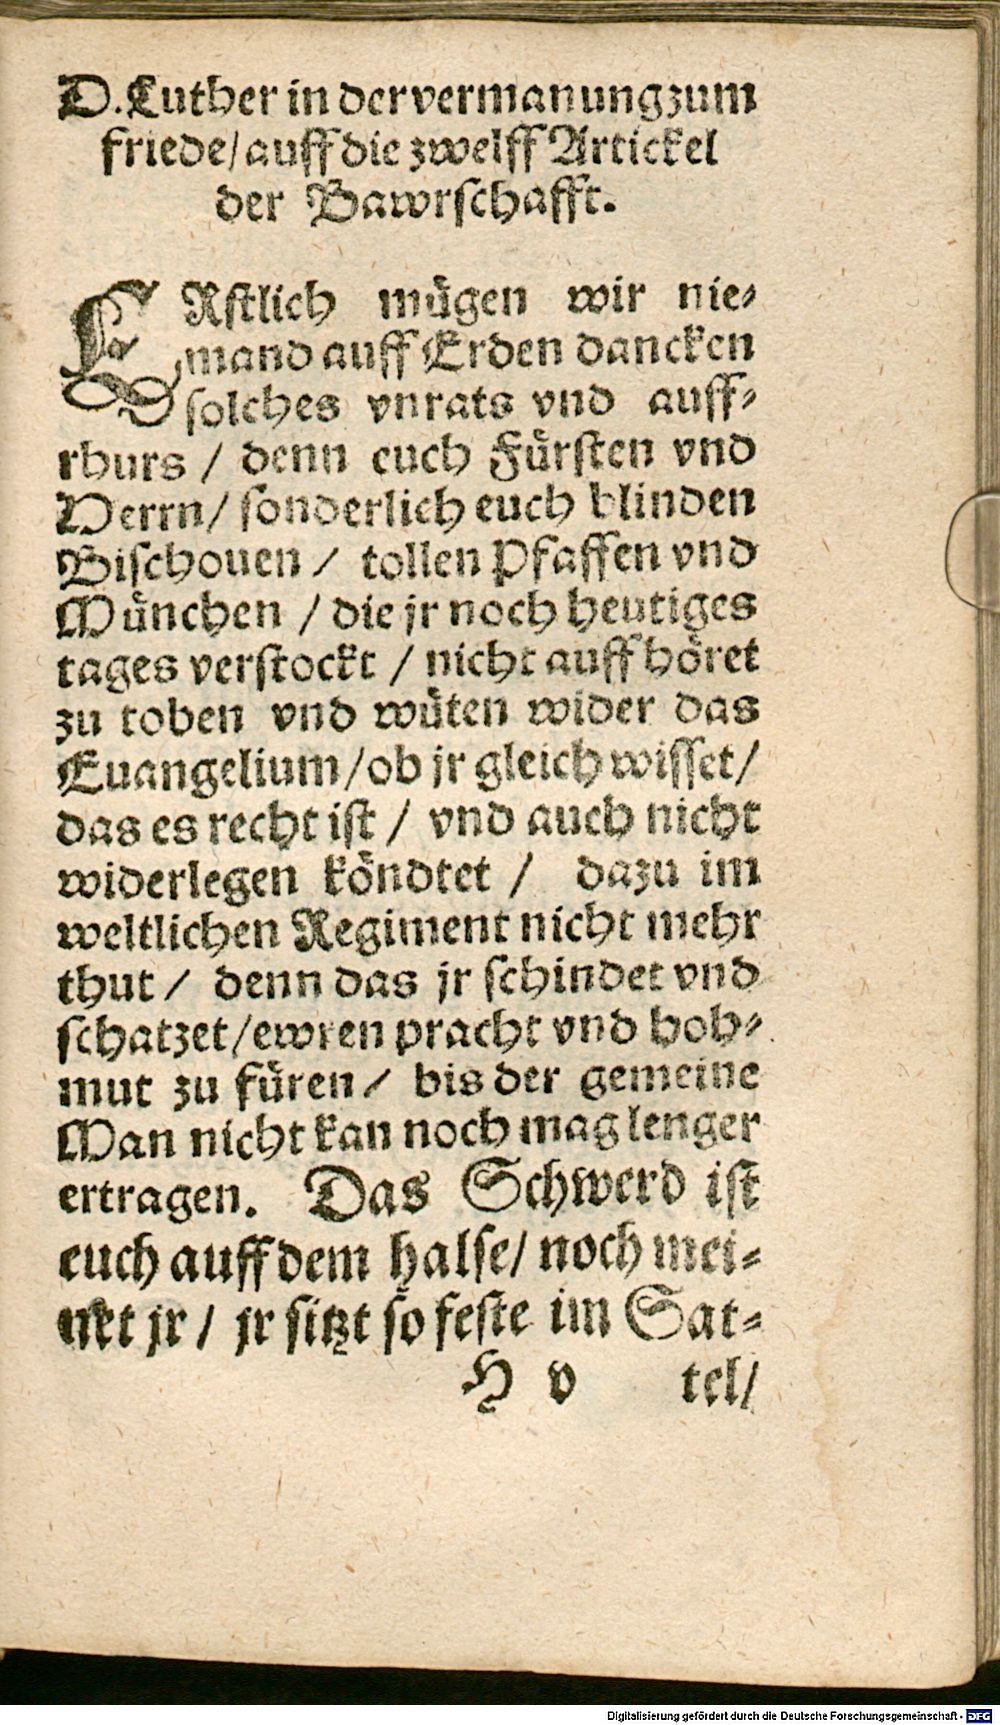 D. Luther in der vermanung zum
friede/ auff die zwelff Artickel
der Bawrschafft.
ERstlich mügen wir nie-
mand auff Erden dancken
solches vnrats vnd auff-
rhurs / denn euch Fürsten vnd
Herrn/ sonderlich euch blinden
Bischouen / tollen Pfaffen vnd
München / die jr noch heutiges
tages verstockt / nicht auffhöret
zu toben vnd wüten wider das
Euangelium/ ob jr gleich wisset/
das es recht ist / vnd auch nicht
widerlegen köndtet / dazu im
weltlichen Regiment nicht mehr
thut / denn das jr schindet vnd
schatzet/ ewren pracht vnd hoh-
mut zu füren / bis der gemeine
Man nicht kan noch mag lenger
ertragen. Das Schwerd ist
euch auff dem halse/ noch mei-
net jr / jr sitzt so feste im Sat-
H v tel/
Digitalisierung gefördert durch die Deutsche Forschungsgemeinschaft - DFG